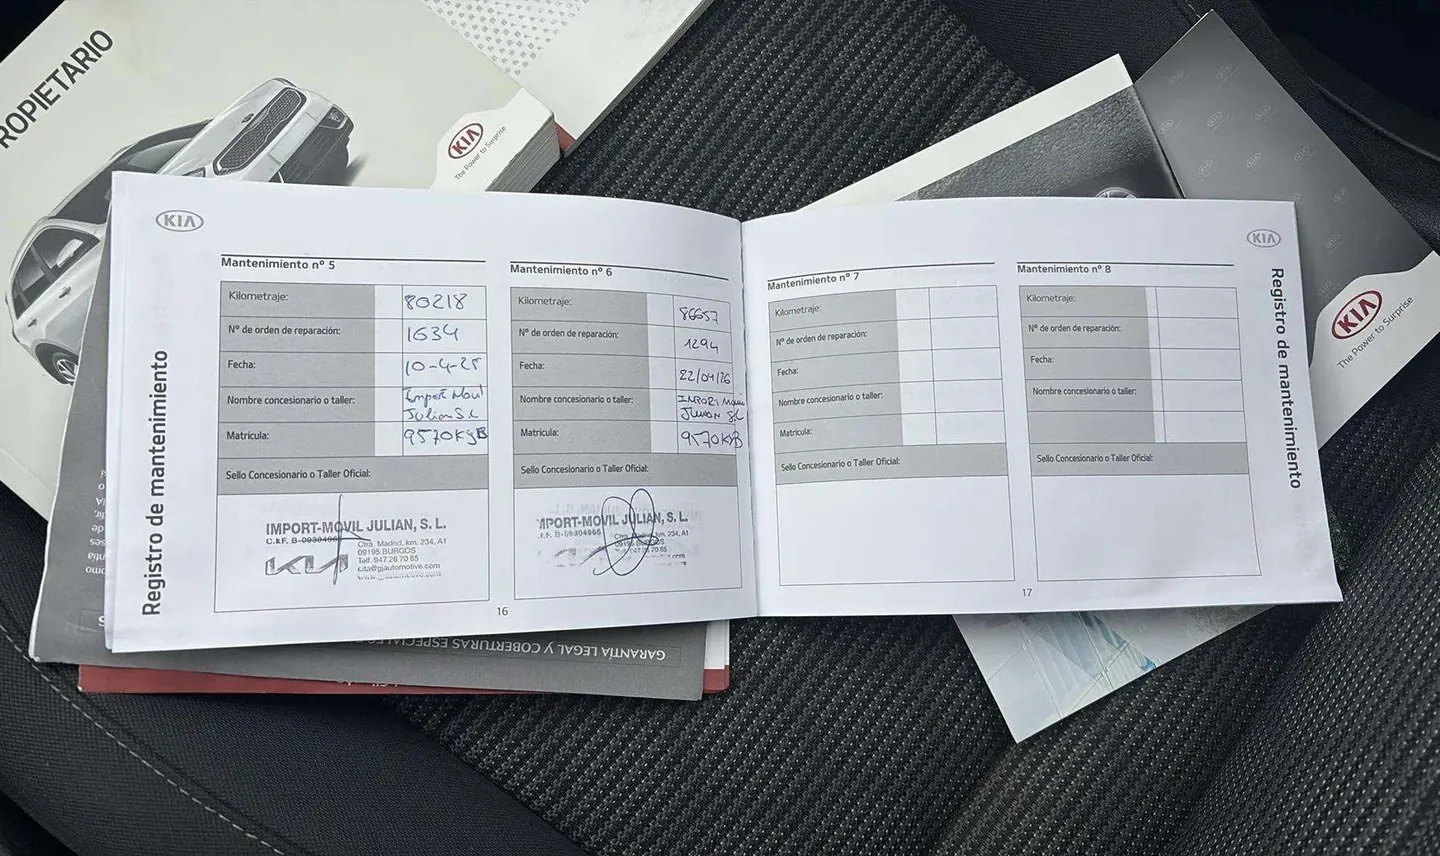 ROPIETARIO
KIA
The Power to Surprise
KIA
The Power to Surprise
KIA
Registro de mantenimiento
Mantenimiento nº 5
Kilometraje: 80218
Nº de orden de reparación: 1634
Fecha: 10-4-25
Nombre concesionario o taller: Import Movil
Julian S.L
Matrícula: 9570KSB
Sello Concesionario o Taller Oficial:
IMPORT-MOVIL JULIAN, S. L.
C.I.F. B-09304965
Ctra. Madrid, km. 234, A1
09195 BURGOS
Telf. 947 26 70 85
cita@gjautomotive.com
www.gjautomotive.com
KIA
16
Mantenimiento nº 6
Kilometraje: 86657
Nº de orden de reparación: 1294
Fecha: 22/01/26
Nombre concesionario o taller: IMPORT Movil
Julian S.L
Matrícula: 9570KSB
Sello Concesionario o Taller Oficial:
IMPORT-MOVIL JULIAN, S. L.
C.I.F. B-09304965
Ctra. Madrid, km. 234, A1
09195 BURGOS
947 26 70 85
Mantenimiento nº 7
Kilometraje:
Nº de orden de reparación:
Fecha:
Nombre concesionario o taller:
Matrícula:
Sello Concesionario o Taller Oficial:
Mantenimiento nº 8
Kilometraje:
Nº de orden de reparación:
Fecha:
Nombre concesionario o taller:
Matrícula:
Sello Concesionario o Taller Oficial:
17
KIA
Registro de mantenimiento
GARANTÍA LEGAL Y COBERTURAS ESPECIALES